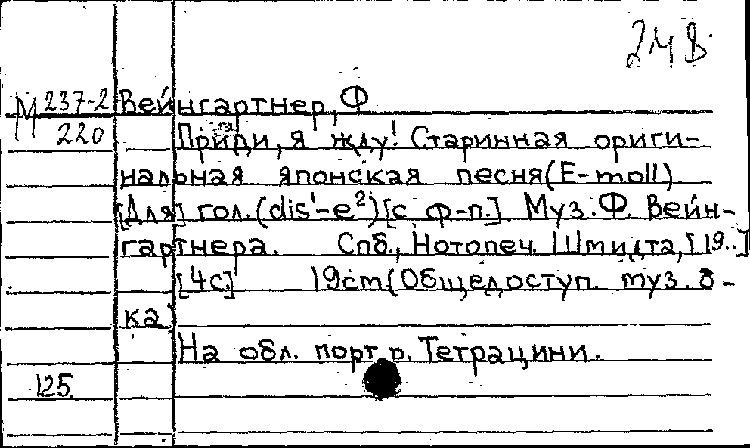 2М8.
М 237-2 Вейнгартнер, Ф
220 Приди, я жду! Старинная ориги-
нальная японская песня (E-moll)
[Для] гол. (dis¹-e²) [с ф-п.] Муз. Ф. Вейн-
гартнера. Спб., Нотопеч. Шмидта, [19..]
[4с.] 19cm (Общедоступ. муз. б-
ка)
На обл. порт. р. Тетрацини.
125.